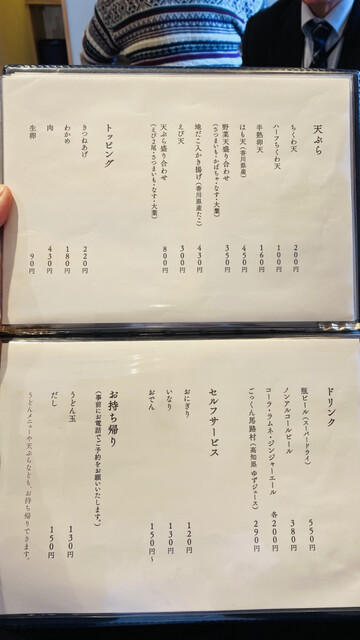 天ぷら
ちくわ天 200円
ハーフちくわ天 100円
半熟卵天 160円
はも天(香川県産) 450円
野菜天盛り合わせ 350円
(さつまいも・かぼちゃ・なす・大葉)
地だこ入かき揚げ(香川県産たこ) 430円
えび天 300円
天ぷら盛り合わせ 800円
(えび2尾・さつまいも・なす・大葉)
トッピング
きつねあげ 220円
わかめ 180円
肉 430円
生卵 90円
ドリンク
瓶ビール(スーパードライ) 550円
ノンアルコールビール 380円
コーラ・ラムネ・ジンジャーエール 各200円
ごっくん馬路村(高知県 ゆずジュース) 290円
セルフサービス
おにぎり 120円
いなり 130円
おでん 150円〜
お持ち帰り
(事前にお電話でご予約をお願いいたします。)
うどん玉 130円
だし 150円
うどんメニューや天ぷらなども、お持ち帰りできます。